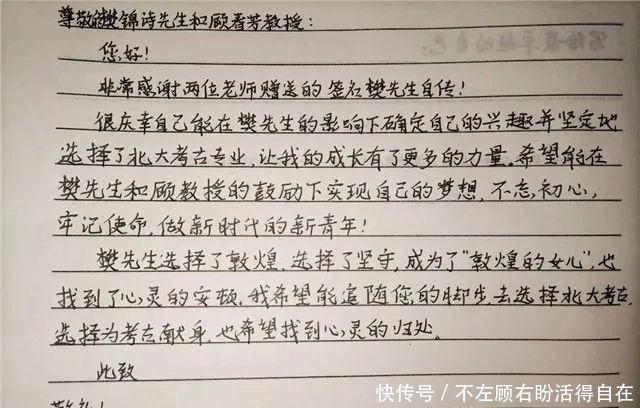 尊敬的樊锦诗先生和顾春芳教授:
您好!
非常感谢两位老师赠送的签名樊先生自传!
很庆幸自己能在樊先生的影响下确定自己的兴趣并坚定地
选择了北大考古专业,让我的成长有了更多的力量。希望能在
樊先生和顾教授的鼓励下实现自己的梦想,不忘初心,
牢记使命,做新时代的新青年!
樊先生选择了敦煌,选择了坚守,成为了“敦煌的女儿”,也
找到了心灵的安顿。我希望能追随您的脚步,去选择北大考古,
选择为考古献身,也希望找到心灵的归处。
此致
敬礼!
快传号/不左顾右盼活得自在